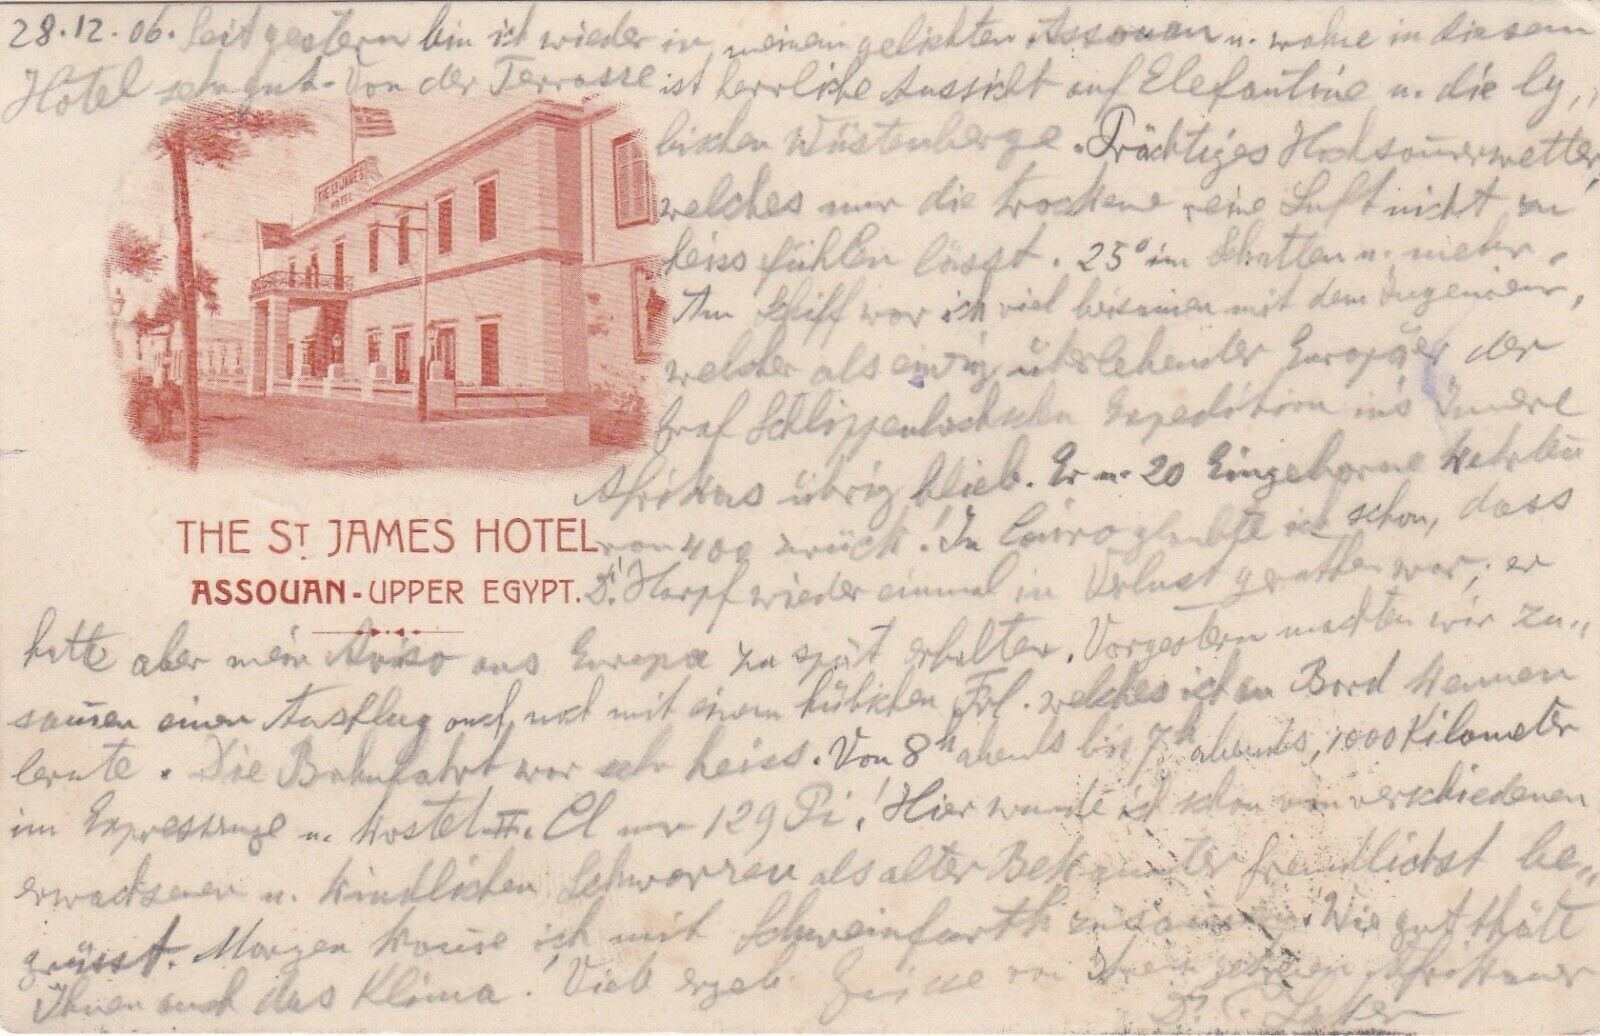 28.12.06. Seit gestern bin ich wieder in meinem geliebten Assouan u. wohne in diesem
Hotel sehr gut. Von der Terrasse ist herrliche Aussicht auf Elefantine u. die ly„
bischen Wüstenberge. Prächtiges Hochsom̅erwetter,
welches nur die trockene reine Luft nicht zu
heiss fühlen lässt. 25° im Schatten u. mehr.
Am Schiff war ich viel beisam̅en mit dem Ingenieur,
welcher als einzig überlebender Europäer der
Graf Schlippenbachschen Expedition in's Innere
Afrikas übrig blieb. Er u. 20 Eingeborne kehrten
von 400 zurück! In Cairo glaubte ich schon, dass
Dr. Harpf wieder einmal in Verlust gerathen war; er
hatte aber mein Aviso aus Europa zu spät erhalten. Vorgestern machten wir zu„
sam̅en einen Ausflug auch noch mit einem hübschen Frl. welches ich an Bord kennen
lernte. Die Bahnfahrt war sehr heiss. Von 8h abends bis 7h abends, 1000 Kilometer
im Expresszuge u. kostet II. Cl nur 129 Pi! Hier wurde ich schon von verschiedenen
erwachsenen u. kindlichen Schwarzen als alter Bekannter freundlichst be„
grüsst. Morgen kom̅e ich mit Schweinfurth zusam̅en. Wie gut thäte
Ihnen auch das Klima! Viele ergeb. Grüsse von Ihrem Afrikaner
Dr.
THE ST JAMES HOTEL
THE ST JAMES HOTEL
ASSOUAN - UPPER EGYPT.